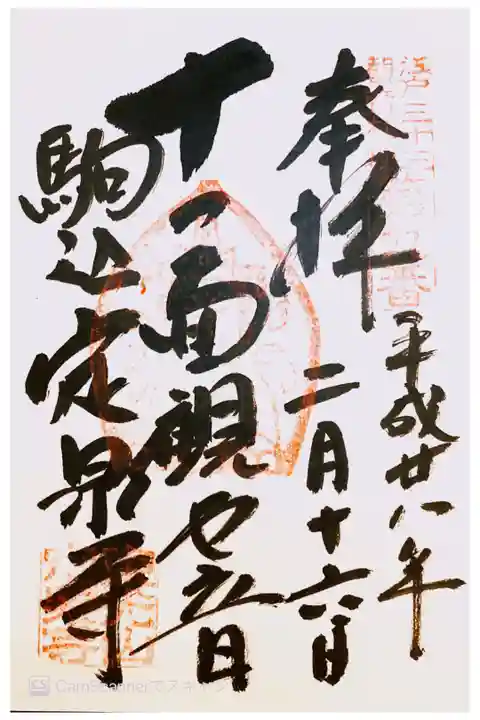 平成廿八年
奉拝
二月十六日
十一面観世音
駒込定泉寺
CS CamScannerでスキャン